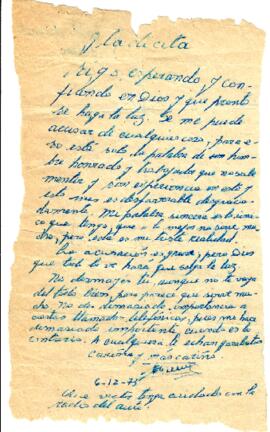 Gladicita
Sigo, esperando y con-
fiando en Dios y que pronto
se haga la luz. Se me puede
acusar de cualquier cosa, para e-
so está solo la palabra de un hom-
bre honrado y trabajador que no sabe
mentir y son experiencia en esto y
esto me es desfavorable desgracia-
damente. Mi palabra sincera es lo úni-
co que tengo, que a lo mejor no sea mu-
cho, pero esta es mi triste realidad.
La acusación es grave, pero Dios
que todo lo ve hará que salga la luz
No desmayo tu, aunque no te vaya
del todo bien, pero parece que aquel mucha-
cho no da demasiada importancia a
ciertas llamadas telefónicas, pues me hace
demasiado impotente, cuando es lo
contrario. A cualquiera le echan garabatos
cariños y más cariños.
6-12-75
Que
tenga cuidado con la
radio del auto.